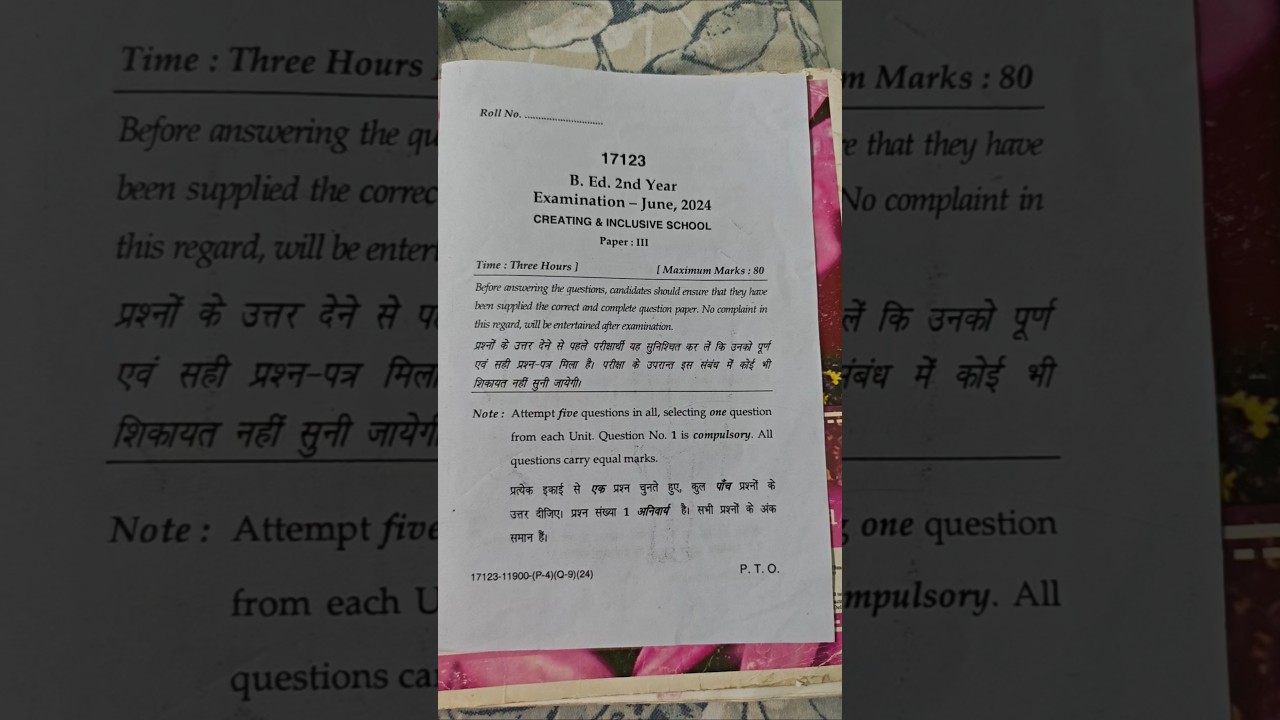 Roll No. ..............................
17123
B. Ed. 2nd Year
Examination – June, 2024
CREATING & INCLUSIVE SCHOOL
Paper : III
Time : Three Hours ] [ Maximum Marks : 80
Before answering the questions, candidates should ensure that they have
been supplied the correct and complete question paper. No complaint in
this regard, will be entertained after examination.
प्रश्नों के उत्तर देने से पहले परीक्षार्थी यह सुनिश्चित कर लें कि उनको पूर्ण
एवं सही प्रश्न-पत्र मिला है। परीक्षा के उपरान्त इस संबंध में कोई भी
शिकायत नहीं सुनी जायेगी।
Note : Attempt five questions in all, selecting one question
from each Unit. Question No. 1 is compulsory. All
questions carry equal marks.
प्रत्येक इकाई से एक प्रश्न चुनते हुए, कुल पाँच प्रश्नों के
उत्तर दीजिए। प्रश्न संख्या 1 अनिवार्य है। सभी प्रश्नों के अंक
समान हैं।
17123-11900-(P-4)(Q-9)(24) P. T. O.